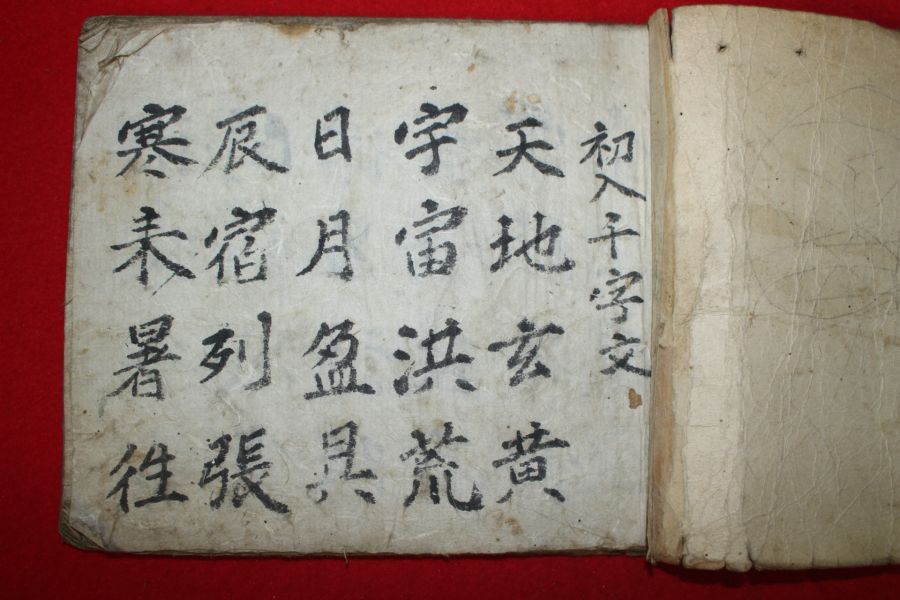 初入千字文
天地玄黄
宇宙洪荒
日月盈具
辰宿列張
寒来暑徃